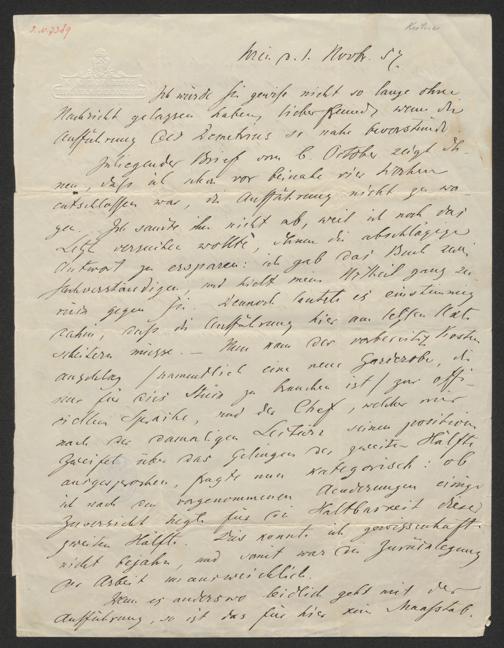 J.N. 7389
Wien, d. 1. Novbr. 57.
Ich würde Sie gewiß nicht so lange ohne
Nachricht gelassen haben, lieber Freund, wenn die
Aufführung des Demetrius so nahe bevorstünde
Inliegender Brief vom 6. October zeigt Ih
nen, daß ich schon vor beinahe vier Wochen
entschlossen war, die Aufführung nicht zu wa
gen. Ich sandte ihn nicht ab, weil ich noch das
Letzte versuchen wollte, Ihnen die abschlägige
Antwort zu ersparen: ich gab das Buch zwei
Sachverständigen, und hielt mein Urtheil ganz zu
rück gegen sie. Dennoch lautete es einstimmig
dahin, daß die Aufführung hier am letzten Akte
scheitern müsse. – Nun kam der vorbereitete Kosten
anschlag /namentlich eine neue Garderobe, die
nur für dies Stück zu brauchen ist/ zur offi
ziellen Sprache, und der Chef, welcher mir
nach der damaligen Lectüre seinen positiven
Zweifel über das Gelingen der zweiten Hälfte
ausgesprochen, fragte nun kategorisch: ob
ich nach den vorgenommenen Aenderungen einige
Zuversicht hegte für die Haltbarkeit dieser
zweiten Hälfte. Das konnte ich gewissenhaft
nicht bejahen, und somit war die Zurücklegung
der Arbeit unausweichlich.
Wenn es anderswo leidlich geht mit der
Aufführung, so ist das für hier kein Maaßstab.